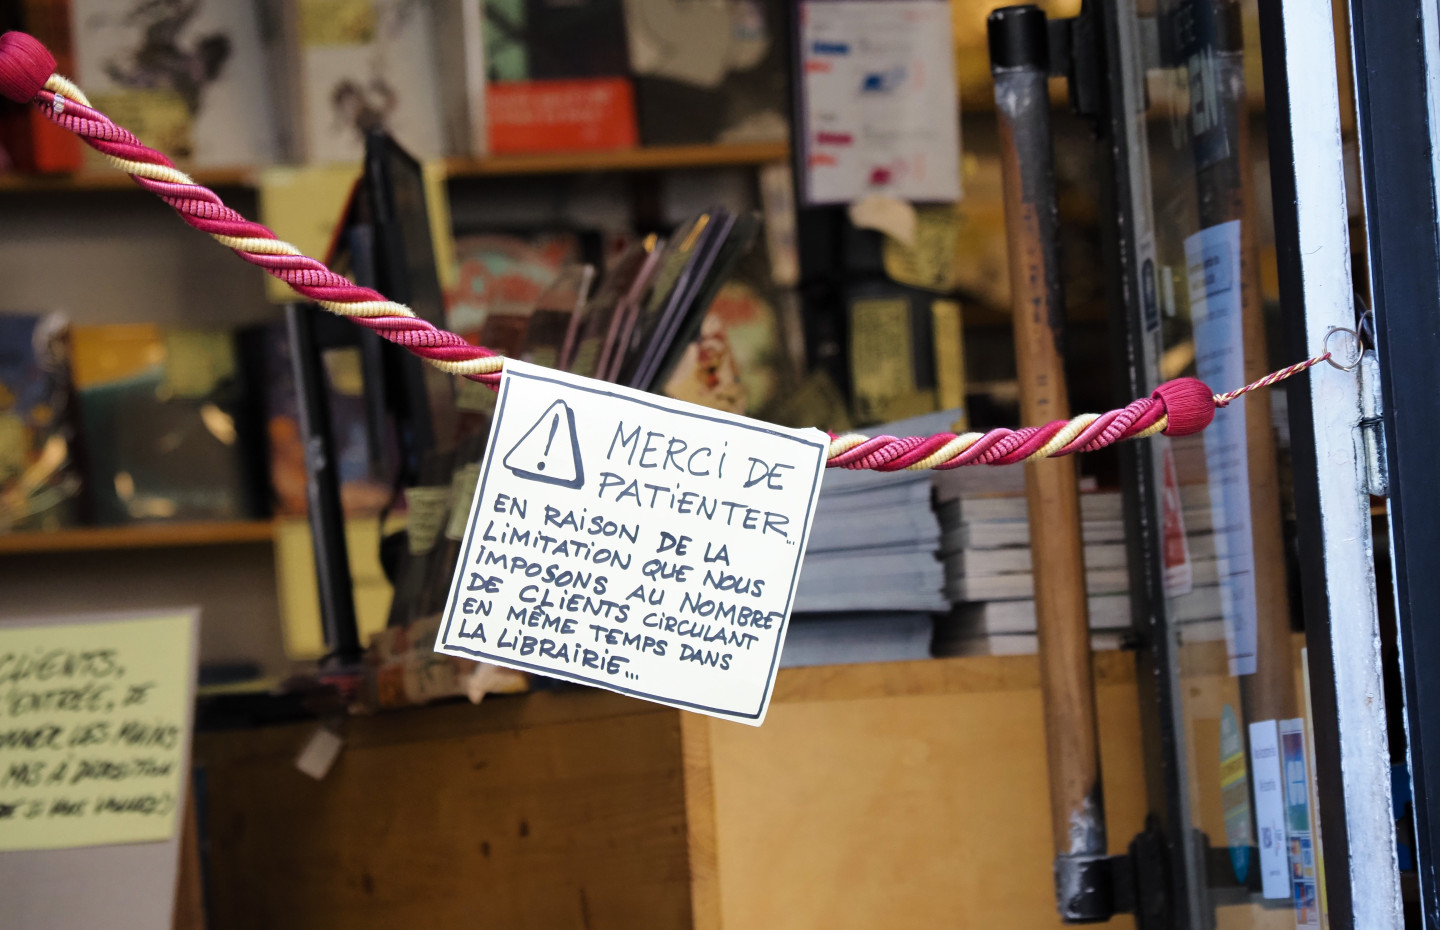 MERCi DE
PATiENTER...
EN RAiSON DE LA
LiMiTATiON QUE NOUS
iMPOSONS AU NOMBRE
DE CLiENTS CiRCULANT
EN MÊME TEMPS DANS
LA LiBRAiRiE...
CLiENTS,
L'ENTRÉE, JE
LES MAiNS
OPEN